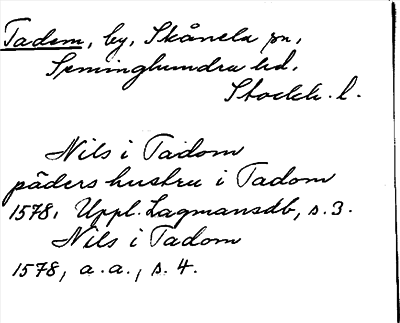 Tadem, by, Skånela sn,
Seminghundra hd.
Stockh. l.
Nils i Tadom
päders hustru i Tadom
1578, Uppl. Lagmansdb, s. 3.
Nils i Tadom
1578, a. a., s. 4.